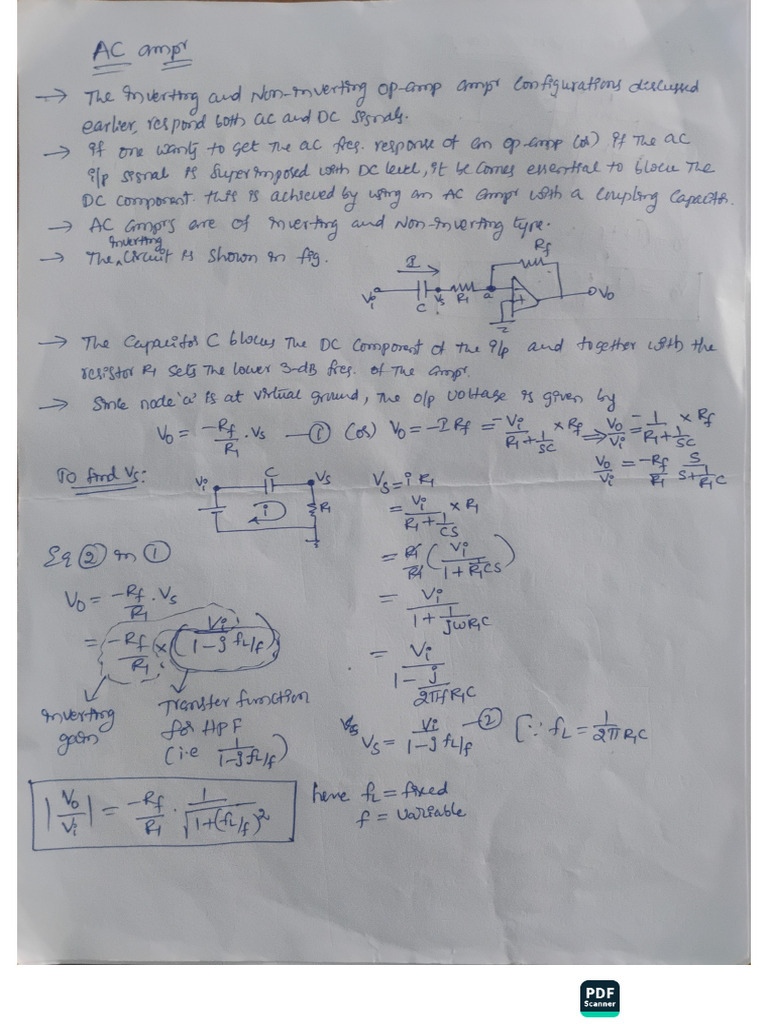 AC ampr
→ The Inverting and Non-inverting op-amp ampr configurations discussed
earlier, respond both ac and DC signals.
→ if one wants to get the ac freq. response of an op-amp (or) if the ac
i/p signal is superimposed with DC level, it becomes essential to block the
DC component. this is achieved by using an AC ampr with a coupling capacitor.
→ AC amprs are of inverting and Non-inverting type.
→ The inverting circuit is shown in fig.
I
Rf
Vi
C
Vs
R1
a
V0
→ The Capacitor C blocks the DC component of the i/p and together with the
resistor R1 sets the lower 3-dB freq. of the ampr.
→ Since node 'a' is at virtual ground, the o/p voltage is given by
V0 = -Rf/R1 . Vs — ① (or) V0 = -I Rf = -Vi/(R1 + 1/SC) × Rf ⇒ V0/Vi = -1/(R1 + 1/SC) × Rf
V0/Vi = -Rf/R1 S/(S + 1/R1C)
To find Vs:
Vi
C
Vs
R1
i
Vs = i R1
= Vi/(R1 + 1/CS) × R1
Eq ② in ①
= R1/R1 (Vi/(1 + 1/R1CS))
V0 = -Rf/R1 . Vs
= Vi/(1 + 1/jωR1C)
= -Rf/R1 × (Vi/(1 - j fL/f))
= Vi/(1 - j/2πfR1C)
Inverting
gain
Transfer function
for HPF
(i.e 1/(1 - j fL/f))
Vs = Vi/(1 - j fL/f) — ② [∵ fL = 1/2πR1C
|V0/Vi| = -Rf/R1 . 1/√(1 + (fL/f)²)
here fL = fixed
f = variable
PDF
Scanner